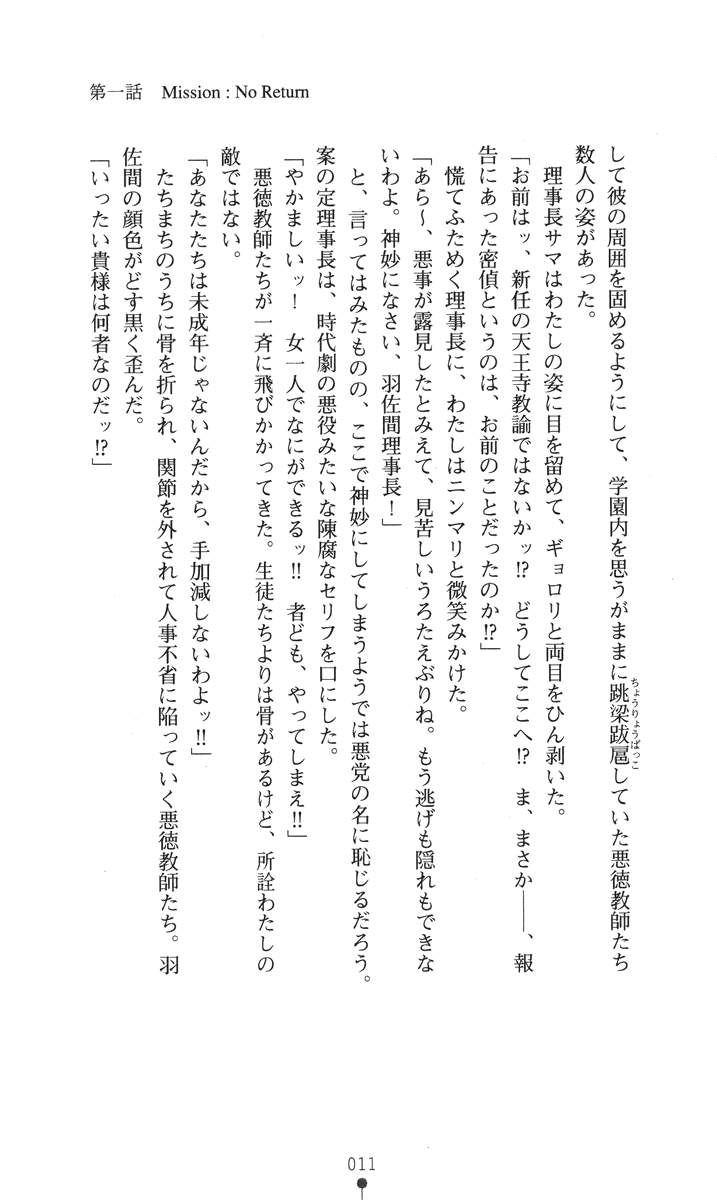 第一話　Mission : No Return
して彼の周囲を固めるようにして、学園内を思うがままに跳梁跋扈していた悪徳教師たち
ちょうりょうばっこ
数人の姿があった。
　理事長サマはわたしの姿に目を留めて、ギョロリと両目をひん剥いた。
「お前はッ、新任の天王寺教諭ではないかッ!?　どうしてここへ!?　ま、まさか――、報
告にあった密偵というのは、お前のことだったのか!?」
　慌てふためく理事長に、わたしはニンマリと微笑みかけた。
「あら～、悪事が露見したとみえて、見苦しいうろたえぶりね。もう逃げも隠れもできな
いわよ。神妙になさい、羽佐間理事長！」
　と、言ってはみたものの、ここで神妙にしてしまうようでは悪党の名に恥じるだろう。
案の定理事長は、時代劇の悪役みたいな陳腐なセリフを口にした。
「やかましいッ！　女一人でなにができるッ!!　者ども、やってしまえ!!」
　悪徳教師たちが一斉に飛びかかってきた。生徒たちよりは骨があるけど、所詮わたしの
敵ではない。
「あなたたちは未成年じゃないんだから、手加減しないわよッ!!」
　たちまちのうちに骨を折られ、関節を外されて人事不省に陥っていく悪徳教師たち。羽
佐間の顔色がどす黒く歪んだ。
「いったい貴様は何者なのだッ!?」
011